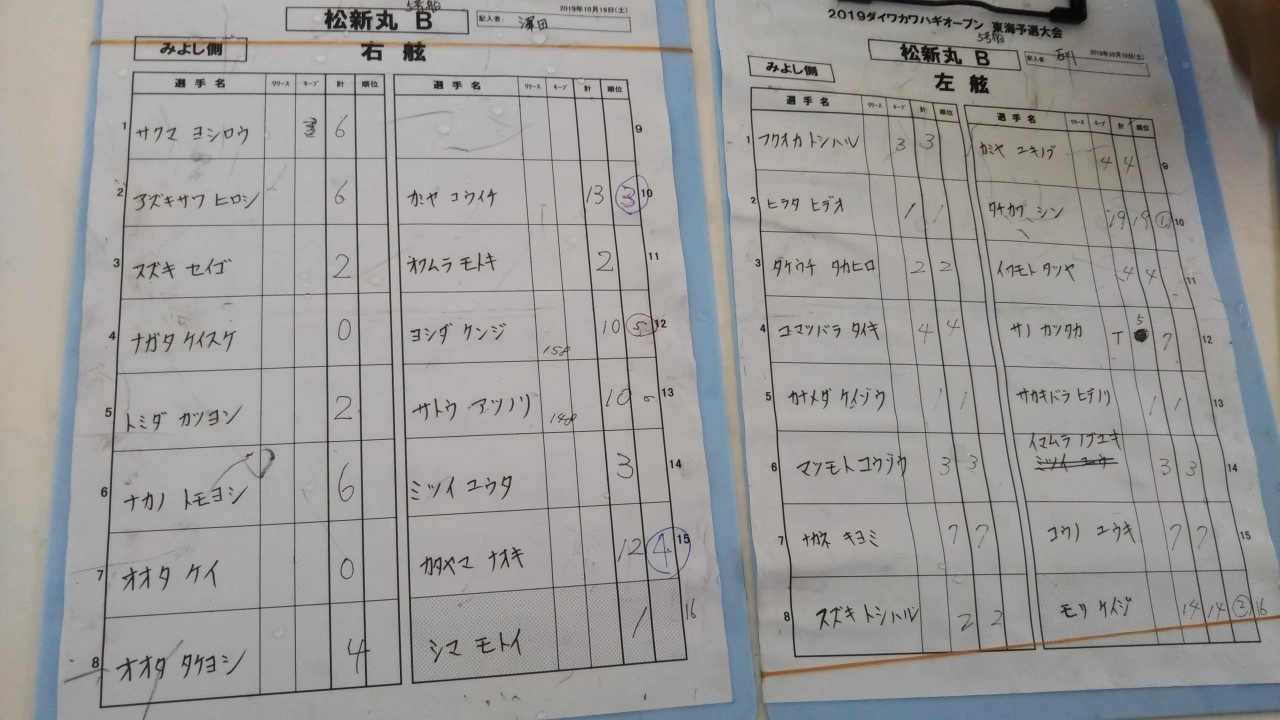 5号船
2019年10月19日(土)
松新丸 B
記入者: 澤田
みよし側
右 舷
選 手 名 リリース キープ 計 順位
1 サクマ ヨシロウ 6
2 アズキサワ ヒロシ 6
3 スズキ セイゴ 2
4 ナガタ ケイスケ 0
5 トミダ カツヨシ 2
6 ナカノ トモヨシ 6
7 オオタ ケイ 0
8 オオタ タケヨシ 4
選 手 名 リリース キープ 計 順位
9
カミヤ コウイチ 13 3 10
オクムラ モトキ 2 11
ヨシダ ケンジ 158 10 5 12
サトウ アツノリ 148 10 5 13
ミツイ ユウタ 3 14
カタヤマ ナオキ 12 4 15
シマ モトイ 1 16
2019ダイワカワハギオープン 東海予選大会
5号船
松新丸 B
2019年10月19日(土)
記入者:
みよし側
左 舷
選 手 名 リリース キープ 計 順位
1 フクオカ トシハル 3 3
2 ヒラタ ヒデオ 1 1
3 タケウチ タカヒロ 2 2
4 コマツバラ タイキ 4 4
5 カナメダ ケイゾウ 1 1
6 マツモト コウジウ 3 3
7 ナガネ キヨミ 7 7
8 スズキ トシハル 2 2
選 手 名 リリース キープ 計 順位
カミヤ ユキノブ 4 4 9
タチカワ シン 19 19 1 10
イワモト タツヤ 4 4 11
サノ カツタカ T 5 7 12
サカキバラ ヒデノリ 1 1 13
イマムラ ノブユキ
ミツイ ユウ 3 3 14
コウノ ユウキ 7 7 15
モリ ケイジ 14 14 2 16